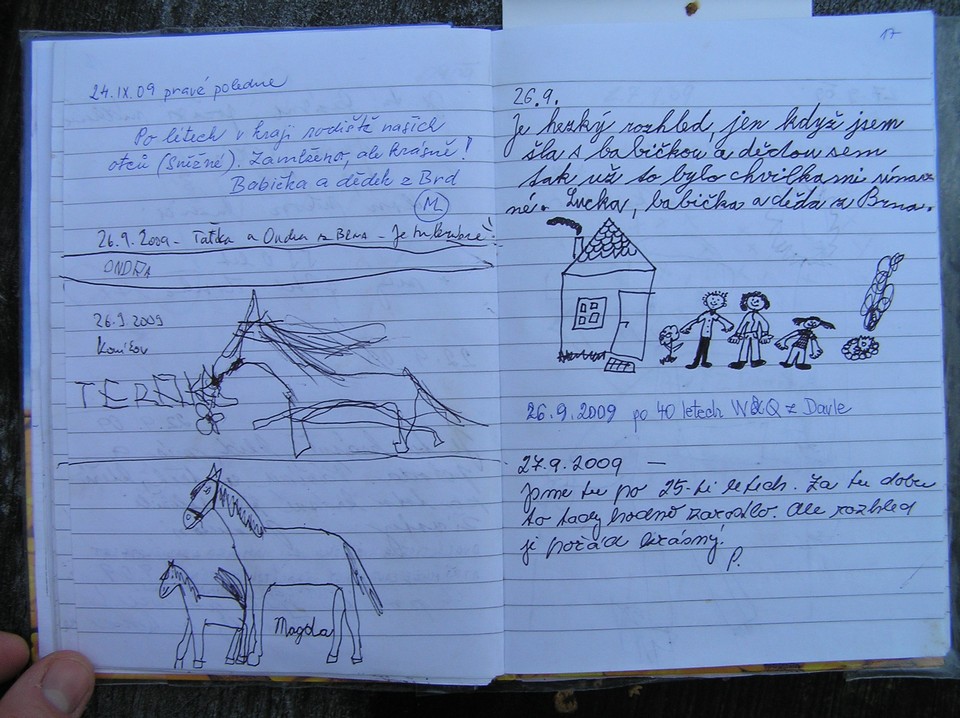 24.IX.09 pravé poledne
Po létech v kraji rodiště našich
otců (Sněžné). Zamlženo, ale krásně!
Babička a dědek z Brd
M.
26.9.2009 - Taťka a Ondra z Brna - Je tu krásně
ONDRA
26.9.2009
Koníkov
Magda
17
26.9.
Je hezký rozhled, jen když jsem
šla s babičkou a dědou sem
tak už to bylo chvilkami únav
né. Lucka, babička a děda z Brna.
26.9.2009 po 40 letech W&Q z Davle
27.9.2009 —
Jsme tu po 25-ti letech. Za tu dobu
to tady hodně zarostlo. Ale rozhled
je pořád krásný!
P.